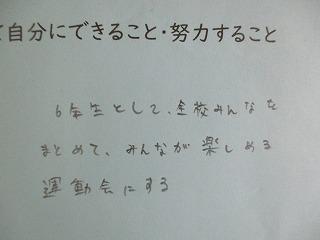 て自分にできること・努力すること
6年生として、全校みんなを
まとめて、みんなが楽しめる
運動会にする